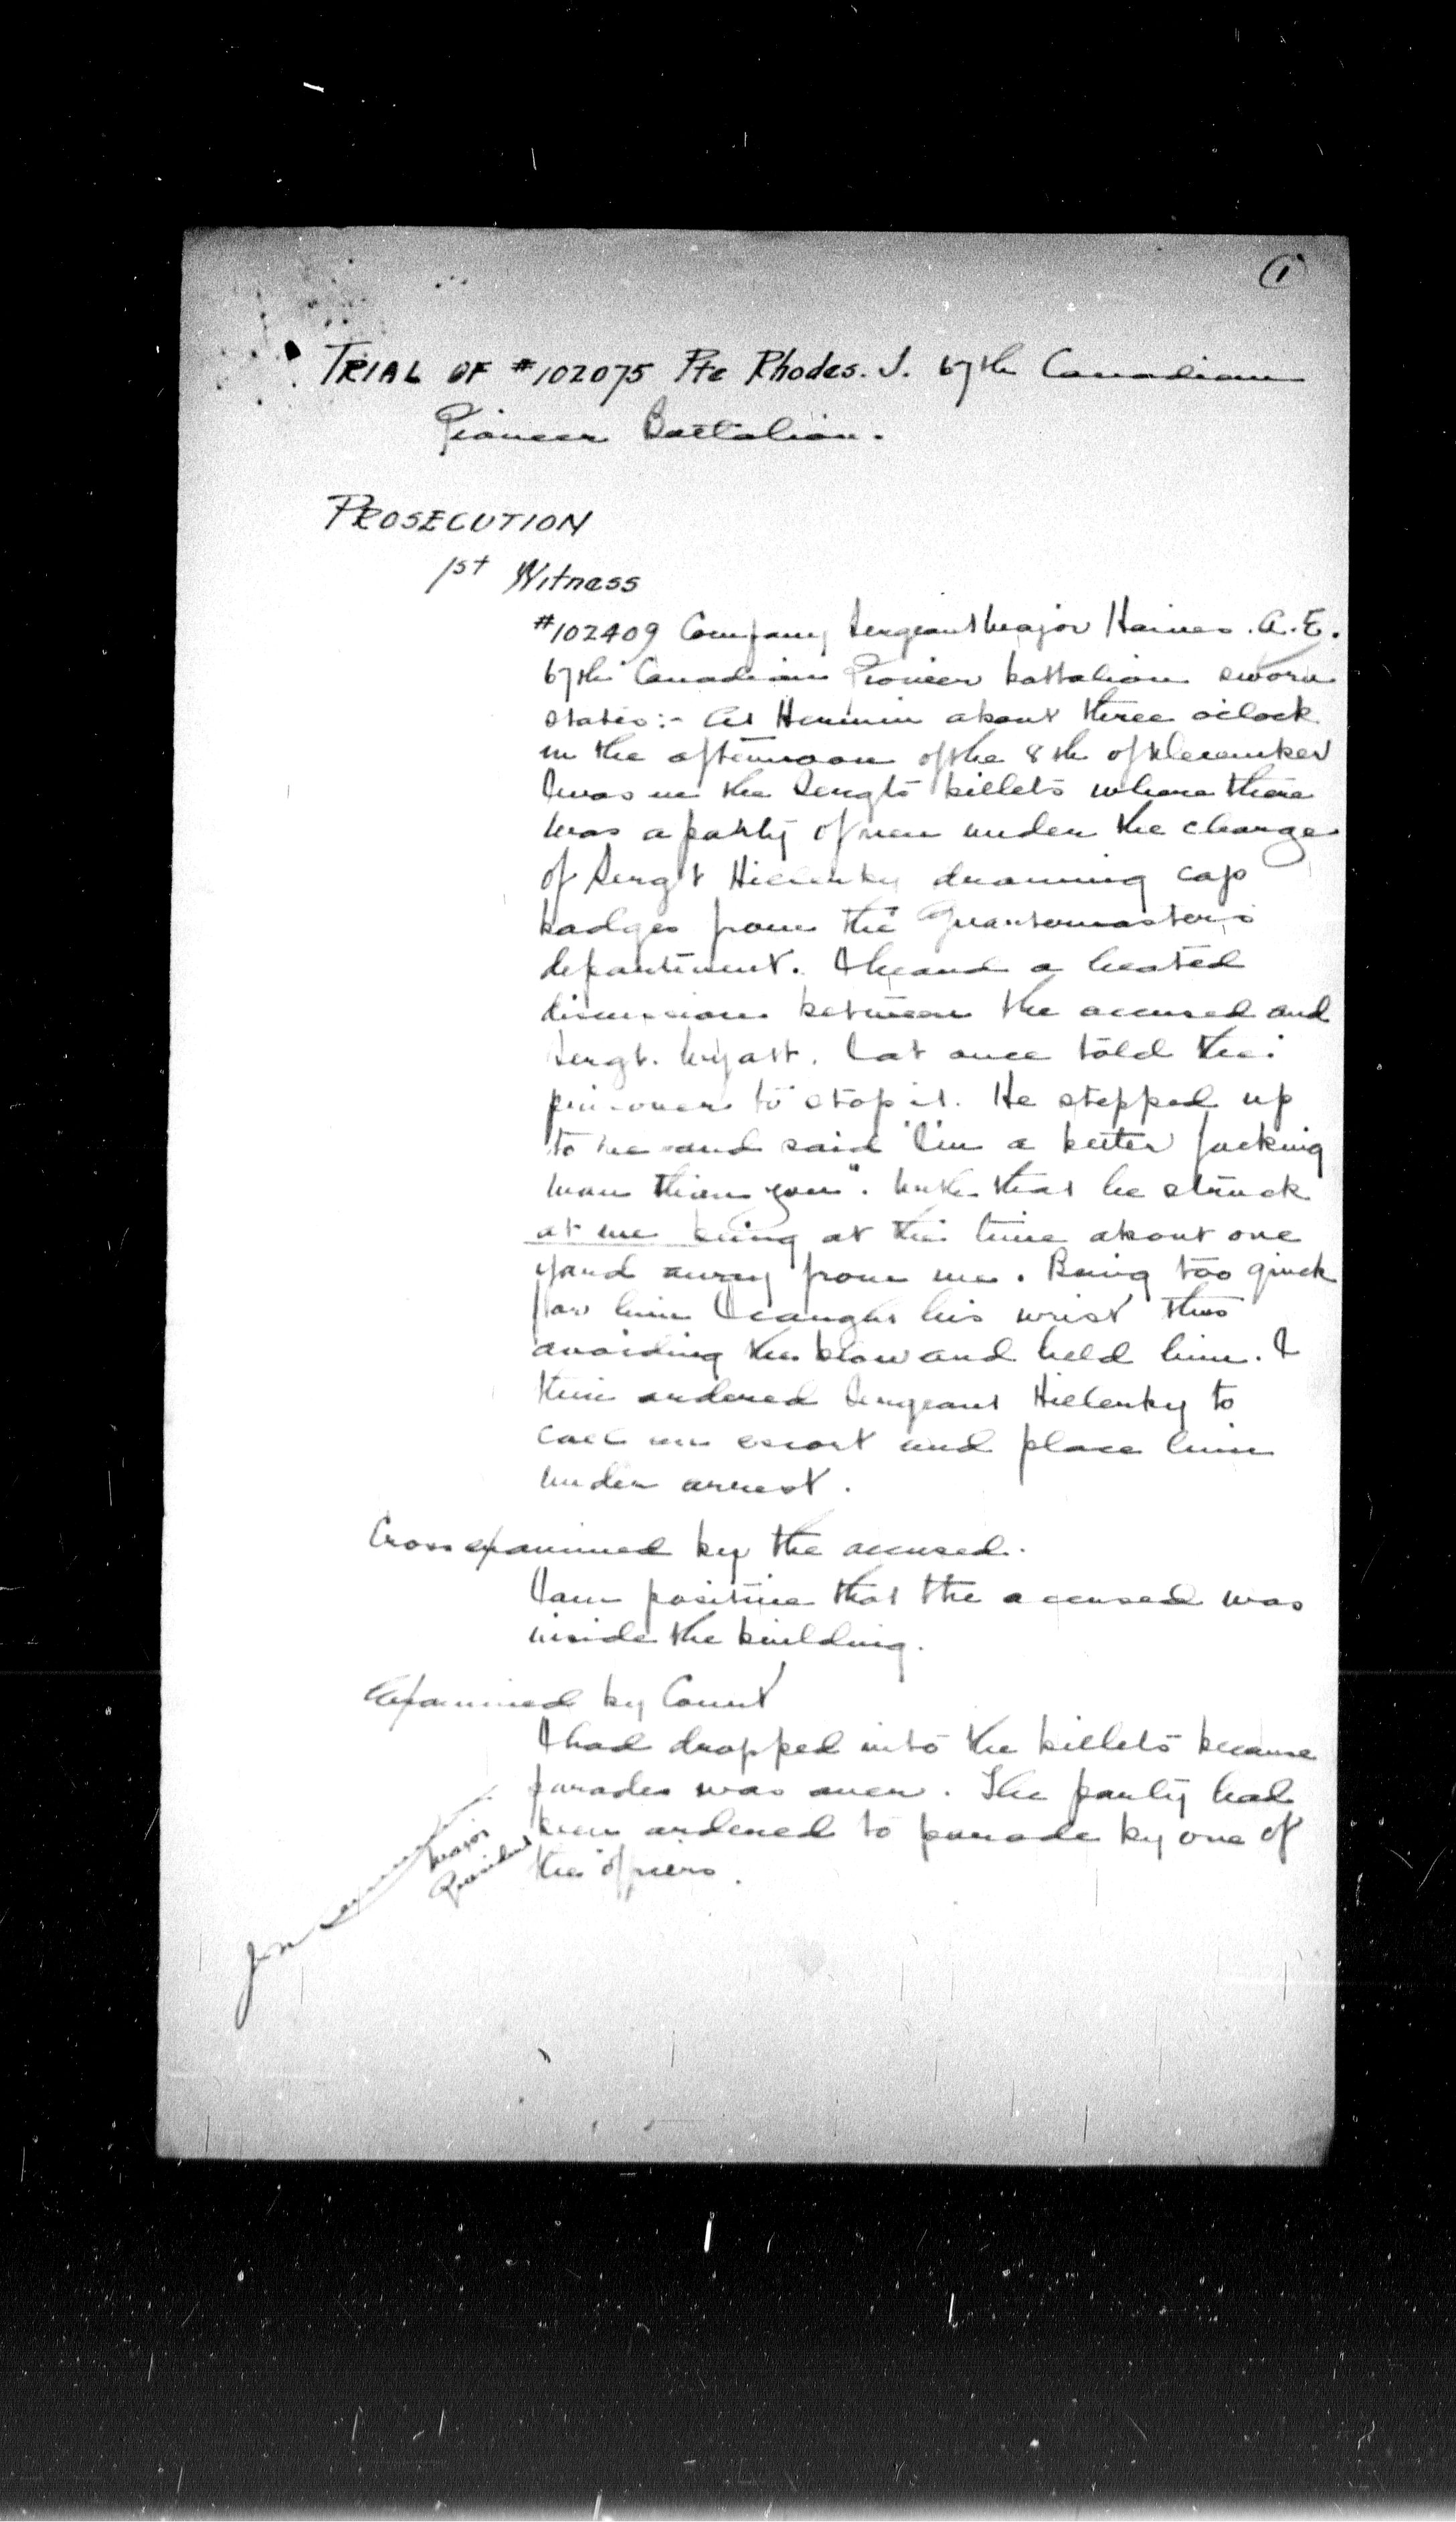 1
TRIAL OF #102075 Pte Rhodes. J. 67th Canadian
Pioneer Battalion.
PROSECUTION
1st Witness
#102409 Company Sergeant Major Haines. A. E.
67th Canadian Pioneer battalion sworn
states :- At about three o'clock
in the afternoon of the 8th of December
I was in the Sergts billets where there
was a party of men under the charge
of Sergt drawing cap
badges from the Quartermaster's
department. I heard a heated
discussion between the accused and
Sergt. Wyatt. I at once told the
prisoner to stop it. He stepped up
to me and said "I'm a better fucking
man than you". With that he struck
at me being at the time about one
yard away from me. Being too quick
for him I caught his wrist thus
avoiding the blow and held him. I
then ordered Sergeant to
call an escort and place him
under arrest.
Cross examined by the accused.
I am positive that the accused was
inside the building.
Examined by Court
I had dropped into the billets because
parades was over. The party had
been ordered to parade by one of
the officers.
Major
President